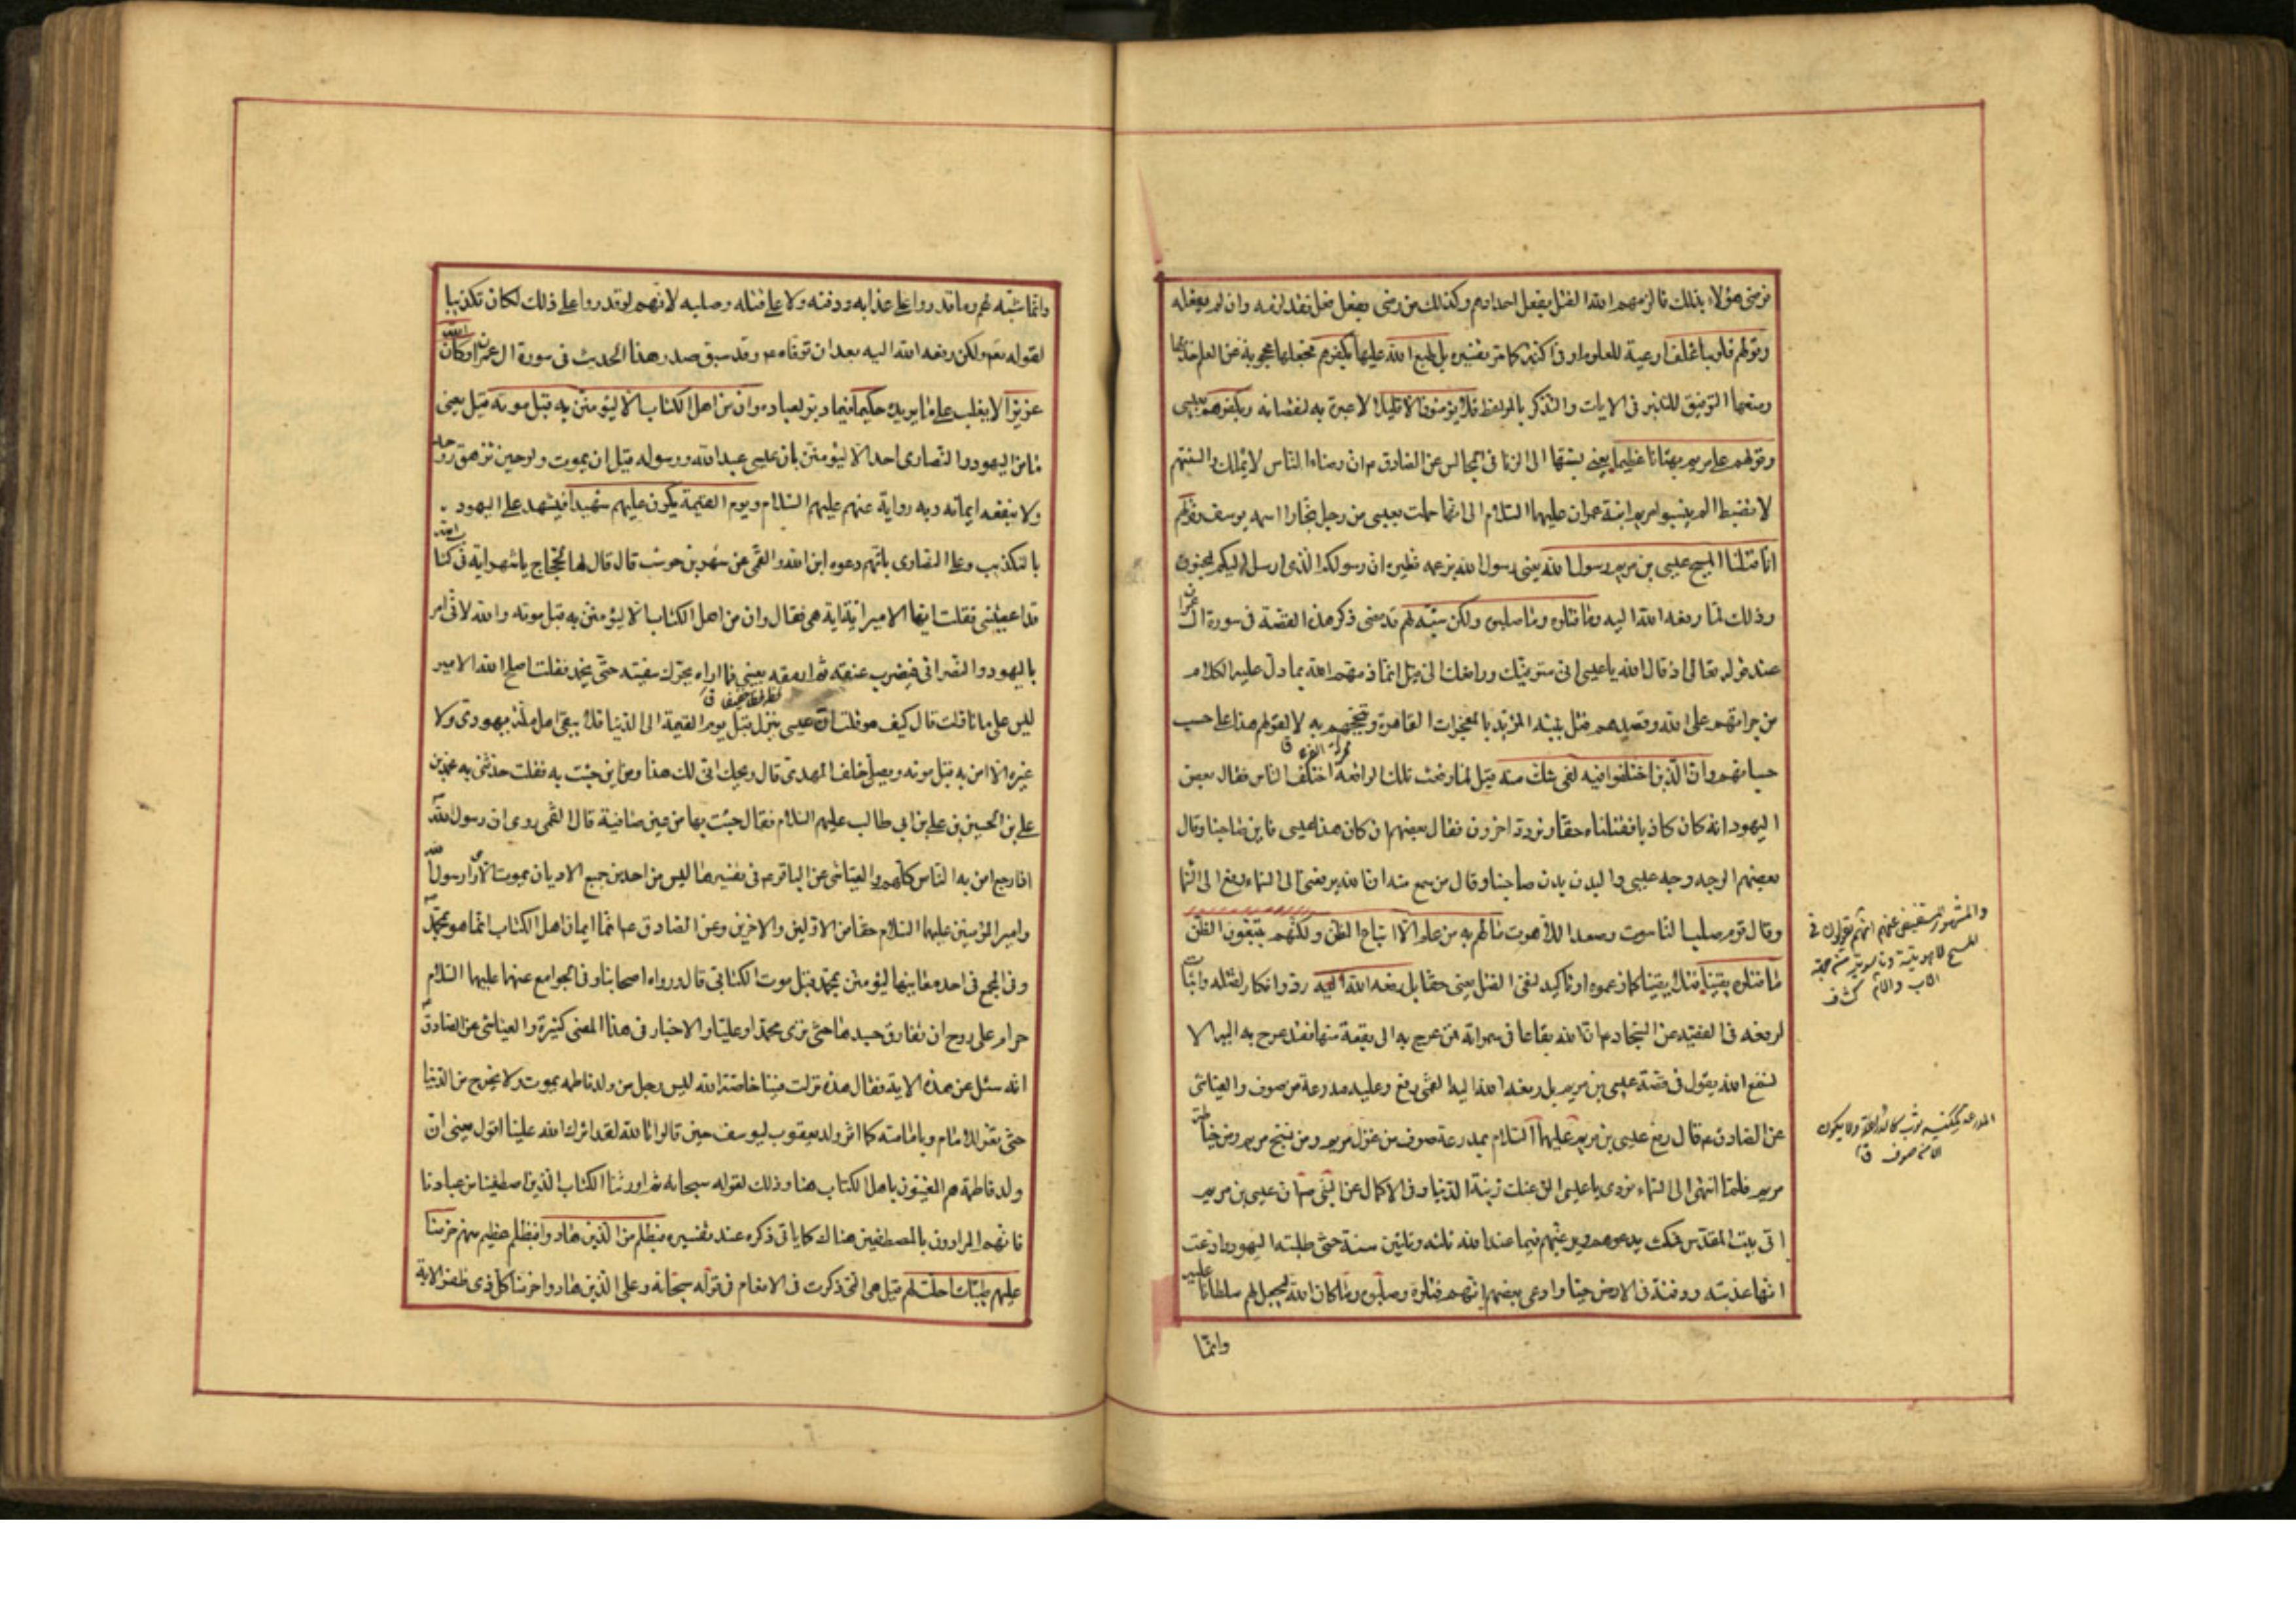 فرضي هؤلاء بذلك فالزمهم الله القتل بفعل اجدادهم وكذلك من رضي بفعل فقد لزمه وان لم يفعله
وقولهم قلوبنا غلف اوعية للعلوم او في اكنة كما مر تفسيره بل طبع الله عليها بكفرهم فجعلها محجوبة عن العلم
ومنعها التوفيق للتدبر في الايات والتذكر بالمواعظ فلا يؤمنون الا قليلا لا عبرة به لنقصانه وبكفرهم بعيسى
وقولهم على مريم بهتانا عظيما يعني نسبتها الى الزنا في المجالس عن الصادق م ان رضاء الناس لا يملك والسنتهم
لا تضبط الم ينسبوا مريم ابنة عمران عليها السلام الى انها حملت بعيسى من رجل نجار اسمه يوسف وقولهم
انا قتلنا المسيح عيسى بن مريم رسول الله يعني رسول الله بزعمه نظيره ان رسولكم الذي ارسل اليكم لمجنون
وذلك لما رفعه الله اليه وما قتلوه وما صلبوه ولكن شبه لهم قد مضى ذكر هذه القصة في سورة ال عمران
عند قوله تعالى اذ قال الله يا عيسى اني متوفيك ورافعك الي قيل انما ذمهم الله بما دل عليه الكلام
من جراتهم على الله وقصدهم قتل نبيه المؤيد بالمعجزات القاهرة وتبجحهم به لا لقولهم هذا على حسب
حسبانهم وان الذين اختلفوا فيه لفي شك منه قيل لما وقعت تلك الواقعة اختلف الناس فقال بعض
اليهود انه كان كاذبا فقتلناه حقا وتردد اخرون فقال بعضهم ان كان هذا عيسى فاين صاحبنا وقال
بعضهم الوجه وجه عيسى والبدن بدن صاحبنا وقال من سمع منه ان الله يرفعني الى السماء رفع الى السما
وقال قوم صلب الناسوت وصعد اللاهوت ما لهم به من علم الا اتباع الظن ولكنهم يتبعون الظن
وما قتلوه يقينا قتلا يقينا كما زعموه او تاكيد لنفي القتل يعني حقا بل رفعه الله اليه رد وانكار لقتله واثبات
لرفعه في الفقيه عن السجاد م ان لله بقاعا في سمواته فمن عرج به الى بقعة منها فقد عرج به اليه الا
تسمع الله يقول في قصة عيسى بن مريم بل رفعه الله اليه القمي رفع وعليه مدرعة من صوف والعياشي
عن الصادق م قال رفع عيسى بن مريم عليهما السلام بمدرعة صوف من غزل مريم ومن نسج مريم ومن خياطة
مريم فلما انتهى الى السماء نودي يا عيسى الق عنك زينة الدنيا وفي الاكمال عن النبي ص ان عيسى بن مريم
اتى بيت المقدس فمكث يدعوهم ويرغبهم فيما عند الله ثلثة وثلثين سنة حتى طلبته اليهود وادعت
انها عذبته ودفنته في الارض حيا وادعى بعضهم انهم قتلوه وصلبوه وما كان الله ليجعل لهم سلطانا عليه
وانما
والمشهور المستفيض عنهم انهم يقولون في
المسيح لاهوتية وناسوتية من جهة
الاب والام كشاف
المدرعة كمكنسة ثوب كالدراعة ولا يكون
الا من صوف ق
وانما شبه لهم وما قدروا على عذابه ودفنه ولا على قتله وصلبه لانهم لو قدروا على ذلك لكان تكذيبا
لقوله تعم ولكن رفعه الله اليه بعد ان توفاه م وقد سبق صدر هذا الحديث في سورة ال عمران وكان الله
عزيزا لا يغلب على ما يريده حكيما فيما دبر لعباده وان من اهل الكتاب الا ليؤمنن به قبل موته قيل يعني
ما من اليهود والنصارى احد الا ليؤمنن بان عيسى عبد الله ورسوله قبل ان يموت ولو حين تزهق روحه
ولا ينفعه ايمانه وبه رواية عنهم عليهم السلام ويوم القيمة يكون عليهم شهيدا فيشهد على اليهود
بالتكذيب وعلى النصارى بانهم دعوه ابن الله والقمي عن شهر بن حوشب قال قال لي الحجاج يا شهر اية في كتاب الله
قد اعيتني فقلت ايها الامير اية اية هي فقال وان من اهل الكتاب الا ليؤمنن به قبل موته والله لاني امر
باليهودي والنصراني فيضرب عنقه ثم ارمقه بعيني فما اراه يحرك شفتيه حتى يخمد فقلت اصلح الله الامير
ليس على ما تاولت قال كيف هو قلت ان عيسى ينزل قبل يوم القيمة الى الدنيا فلا يبقى اهل ملة يهودي ولا
غيره الا امن به قبل موته ويصلي خلف المهدي قال ويحك انى لك هذا ومن اين جئت به فقلت حدثني به محمد بن
علي بن الحسين بن علي بن ابي طالب عليهم السلام فقال جئت بها من عين صافية قال القمي روى ان رسول الله
اذا رجع امن به الناس كلهم والعياشي عن الباقر م في تفسيرها ليس من احد من جميع الاديان يموت الا راى رسول الله
وامير المؤمنين عليهما السلام حقا من الاولين والاخرين وعن الصادق م انما ايمان اهل الكتاب انما هو بمحمد
وفي المجمع في احد معانيها ليؤمنن بمحمد قبل موت الكتابي قال ورواه اصحابنا وفي الجوامع عنهما عليهما السلام
حرام على روح ان تفارق جسدها حتى ترى محمدا وعليا والاخبار في هذا المعنى كثيرة والعياشي عن الصادق
انه سئل عن هذه الاية فقال هذه نزلت فينا خاصة انه ليس رجل من ولد فاطمة يموت ولا يخرج من الدنيا
حتى يقر للامام وبامامته كما اقر ولد يعقوب ليوسف حين قالوا تالله لقد اثرك الله علينا اقول يعني ان
ولد فاطمة هم المعنيون باهل الكتاب هنا وذلك لقوله سبحانه ثم اورثنا الكتاب الذين اصطفينا من عبادنا
فانهم المرادون بالمصطفين هناك كما ياتي ذكره عند تفسيره فبظلم من الذين هادوا فبظلم عظيم منهم حرمنا
عليهم طيبات احلت لهم قيل هي التي ذكرت في الانعام في قوله سبحانه وعلى الذين هادوا حرمنا كل ذي ظفر الاية